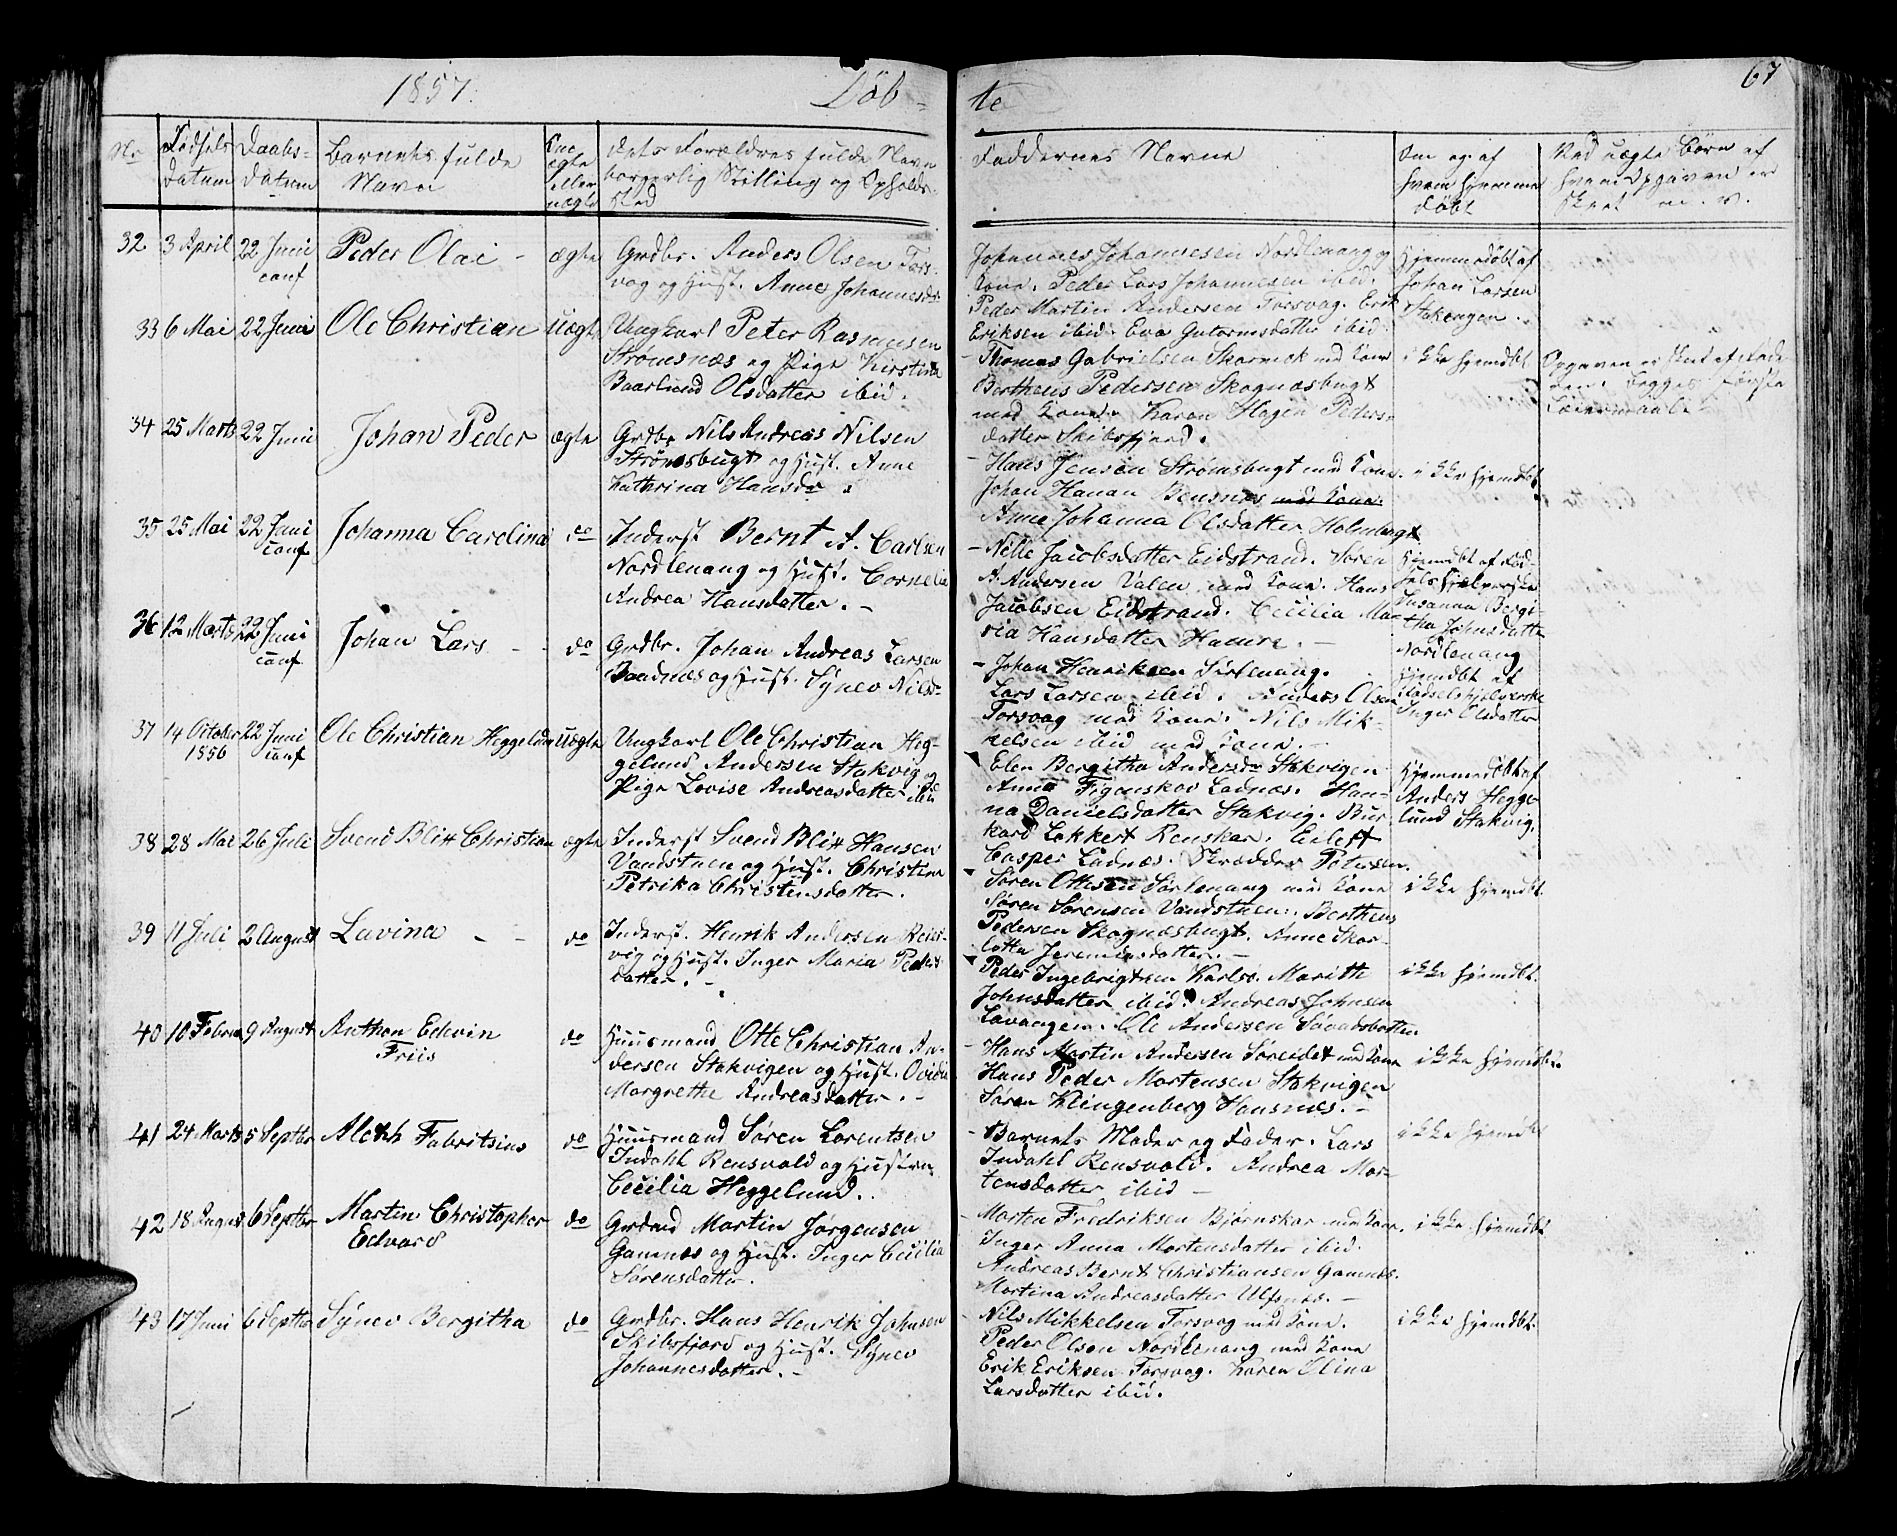 1857.
Döb-
te
67
No
Fødsels
Datum
Daabs-
Datum
Barnets fulde
Navn
Om
ægte
eller
uægte
Dets Forældres fulde Navne
borgerlig Stilling og Opholds-
sted
Faddernes Navne
Om og af
hvem hjemme
døbt
Ved uægte Børn af
hvem Opgaven er
skeet m. v.
32
3 April
22 Juni
conf
Peder Olai -
ægte
Grdbr. Anders Olsen Tors-
vog og Hust. Anne Johannesdr
Johannes Johannesen Nordlenang og
Kone. Peder Lars Johannesen ibid.
Peder Martin Andersen Torsvag. Erik
Eriksen ibid. Eva Gutormsdatter ibid.
Hjemmedøbt af
Johan Larsen
Stakengen.
33
6 Mai
22 Juni
Ole Christian
Uægte
Ungkarl Peter Rasmusen
Strømsnæs og Pige Kirstina
Baarlund Olsdatter ibid.
- Thomas Gabrielsen Skarmok med Kone
Bertheus Pedersen Skognæsbugt
med Kone. Karen Hagen Peders-
datter Skibsfjord.
ikke Hjemdbt
Opgaven er skeet af Fade-
ren. Begges første
Leiermaal.
34
25 Marts
22 Juni
Johan Peder
ægte
Grdbr Nils Andreas Nilsen
Strømsbugt og Hust. Anne
Kathrina Hansdr.
- Hans Jensen Strømsbugt med Kone.
Johan Hanan Bensnes med Kone.
Anne Johanna Olsdatter Holmbugt
ikke Hjemdbt
35
25 Mai
22 Juni
conf
Johanna Carolina
do
Inderst Bernt A. Carlsen
Nordlenang og Hust. Cornelia
Andrea Hansdatter. -
- Nelle Jacobsdatter Eidstrand. Søren
A. Andersen Valen med Kone. Hans
Jacobsen Eidstrand. Cecilia Ma-
ria Hansdatter Hamre. -
Hjemdbt af Fød-
selshjelperske
Susanna Bergi-
tha Johnsdatter
Nordlenang
36
12 Marts
22 Juni
conf
Johan Lars - -
do
Grdbr. Johan Andreas Larsen
Baadnæs og Hust. Synev Nilsdr
- Johan Henriksen Sørlenang.
Lars Larsen ibid. Anders Olsen
Torsvog med Kone. Nils Mik-
kelsen ibid med Kone. -
Hjemdbt af
Fødselshjelperske
Inger Olsdatter
37
14 October
1856
22 Juni
conf
Ole Christian Heggelund
uægte
Ungkarl Ole Christian Heg-
gelund Andersen Stakvig og
Pige Lovise Andreasdatter ibid
- Elen Bergitha Andersdr Stakvigen
Anna Figenskov Ladnæs. Han-
na Danielsdatter Stakvig. Bur-
kard Lokkert Renskar. Eilert
Casper Ladnæs. Skrædder Petersen.
Hjemmedøbt af
Anders Hegge-
lund Stakvig.
38
28 Mai
26 Juli
Svend Blix Christian
ægte
Inderst Svend Blix Hansen
Vandstuen og Hust. Christine
Petrika Christensdatter.
- Søren Ottesen Sørlenang med Kone
Søren Sørensen Vandstuen. Bertheus
Pedersen Skognæsbugt. Anne Skar-
lotta Jeremiasdatter. -
ikke Hjemdbt.
39
11 Juli
2 August
Lavina - -
do
Inderst. Henrik Andersen
vig og Hust. Inger Maria Peders-
datter. -
- Peder Ingebrigtsen Karlsø. Marith
Johnsdatter ibid. Andreas Johnsen
Lavangen. Ole Andersen
ikke Hjemdbt.
40
10 Februa
9 August
Anthon Edvin
Friis
do
Huusmand Otte Christian An-
dersen Stakvigen og Hust. Ovidia
Margrethe Andreasdatter. -
- Hans Martin Andersen Søreidet med Kone
Hans Peder Mortensen Stakvigen
Søren Klingenberg Hansnæs. -
ikke Hjemdbt.
41
24 Marts
5 Septbr
Aleth Fabritsius
do
Huusmand Søren Lorentsen
Indahl Rensvold og Hustru
Cecilia Heggelund.
- Barnets Moder og Fader. Lars
Indahl Rensvold. Andrea Mor-
tensdatter ibid -
ikke Hjemdbt
42
18 August
6 Septbr
Martin Christopher
Edvard
do
Grdmd Martin Jørgensen
Gamnæs og Hust. Inger Cecilia
Sørensdatter.
- Morten Fredriksen Bjørnskar med Kone.
Inger Anna Mortensdatter ibid.
Andreas Bernt Christiansen Gamnæs.
Martina Andreasdatter Ulfsnæs. -
ikke Hjemdbt
43
17 Juni
6 Septbr
Synev Bergitha
do
Grdbr. Hans Henrik Johnsen
Skibsfjord og Hust. Synev
Johannesdatter. -
- Nils Mikkelsen Torsvog med Kone.
Peder Olsen Nordlenang med Kone
Erik Eriksen Torsvog. Karen Olina
Larsdatter ibid.
ikke Hjemdbt.